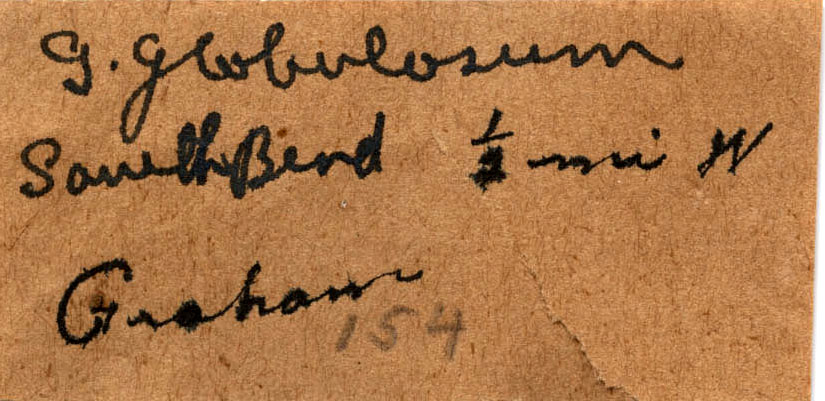 G. globulosum
South Bend ½ mi W
Graham
154